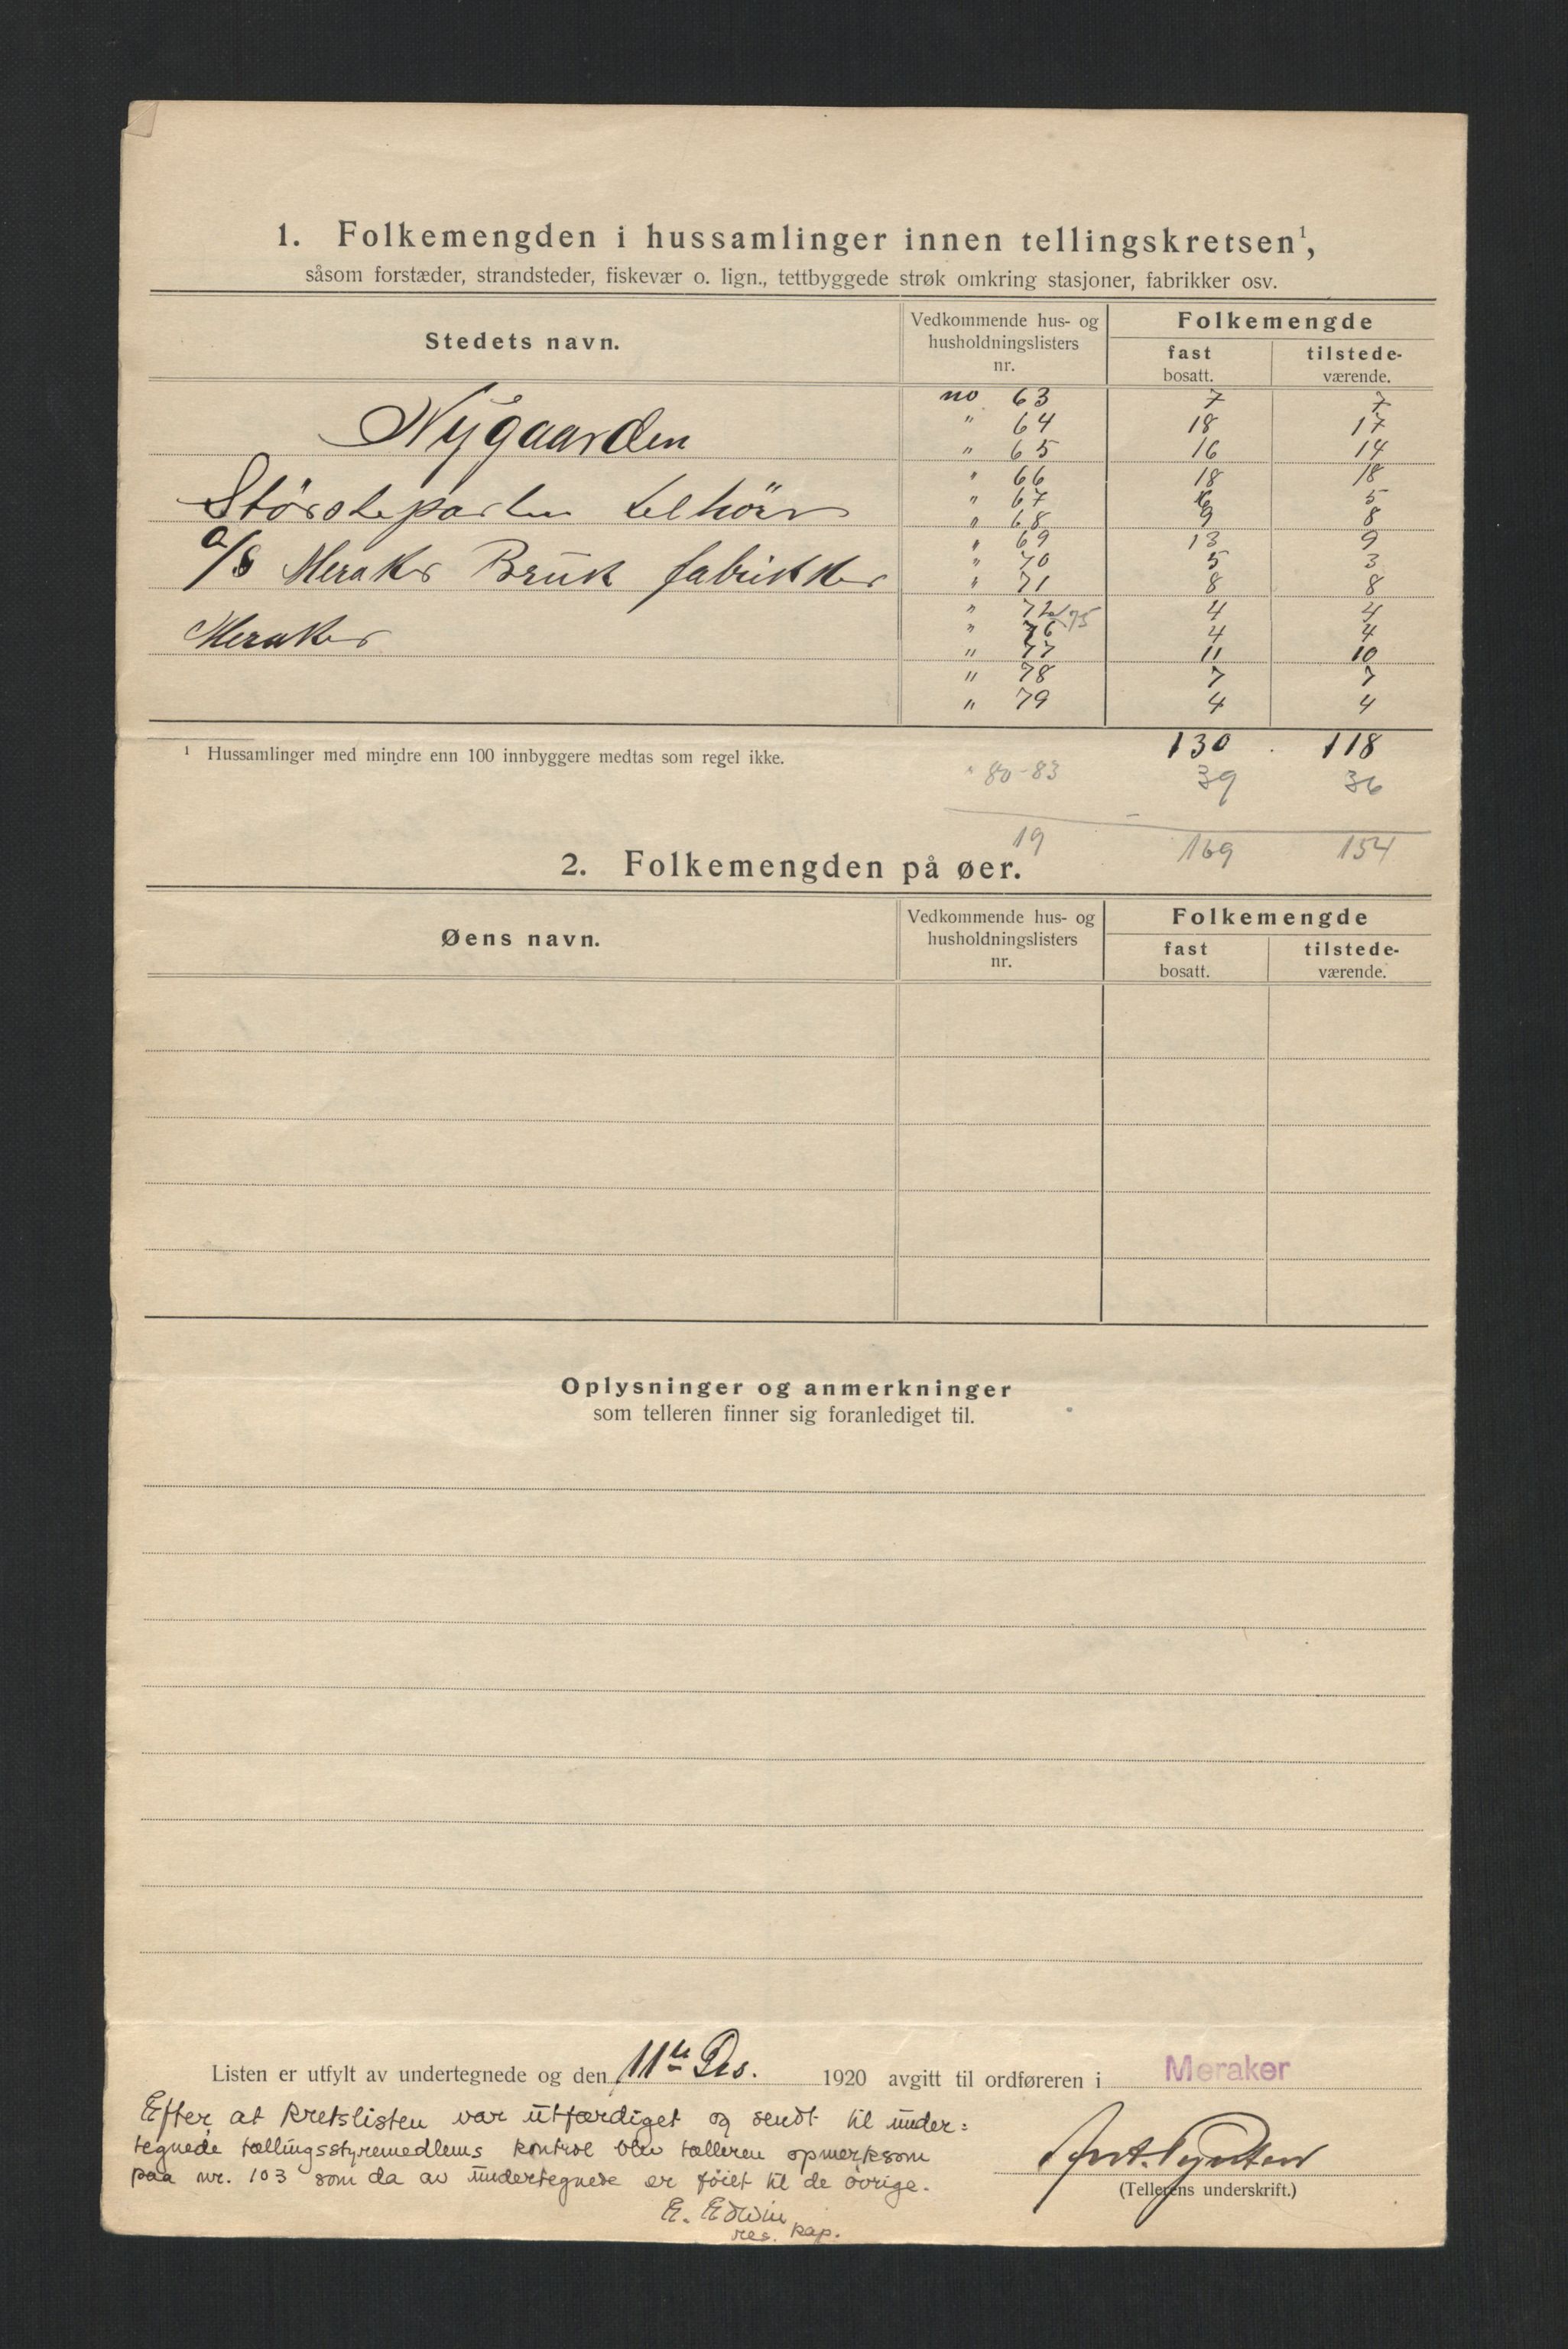 1. Folkemengden i hussamlinger innen tellingskretsen¹,
såsom forstæder, strandsteder, fiskevær o. lign., tettbyggede strøk omkring stasjoner, fabrikker osv.
Stedets navn.
Vedkommende hus- og husholdningslisters nr.
Folkemengde
fast bosatt.
tilstede-værende.
no 63 7 7
Nygaarden
" 64 18 17
" 65 16 14
" 66 18 18
Störsteparten tilhörer
" 67 6 5
" 68 9 8
" 69 13 9
a/s Meraker Bruk fabrikker
" 70 5 3
" 71 8 8
" 72-75 4 4
Meraker
" 76 4 4
" 77 11 10
" 78 7 7
" 79 4 4
130 118
¹ Hussamlinger med mindre enn 100 innbyggere medtas som regel ikke.
" 80-83 39 36
19 169 154
2. Folkemengden på øer.
Øens navn.
Vedkommende hus- og husholdningslisters nr.
Folkemengde
fast bosatt.
tilstede-værende.
Oplysninger og anmerkninger
som telleren finner sig foranlediget til.
Listen er utfylt av undertegnede og den 11te Des. 1920 avgitt til ordføreren i Meraker
Efter at kretslisten var utfærdiget og sendt til under=
tegnede tællingsstyremedlems kontrol blev tælleren opmerksom
paa nr. 103 som da av undertegnede er föiet til de övrige.
E. Edwin
res. kap.
(Tellerens underskrift.)